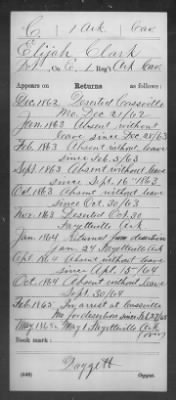 C | 1 | Ark | Cav
Elijah Clark
Pvt., Co. C, 1 Reg't Ark Cav
Appears on Returns as follows:
Dec. 1862 Deserted Cassville
Mo. Dec 21/62
Jan. 1863 Absent without
leave since Dec 28/62
Feb. 1863 Absent without leave
since Feb 3/63
Sept. 1863 Absent without leave
since Sept. 16 - 1863
Oct. 1863 Absent without leave
since Oct 20/63
Nov. 1863 Deserted Oct 30
Fayetteville Ark
Jan. 1864 Returned from desertion
Jan. 24 Fayetteville Ark
Apl. 1864 Absent without leave
since Apl. 15/64
Oct. 1864 Absent without leave
Sept. 30/64
Feb. 1865 In arrest at Cassville
Mo for desertion since Feb
May 1865 May 1 Fayetteville Ark
(over)
Book mark:
Daggett
(546) Copyist.